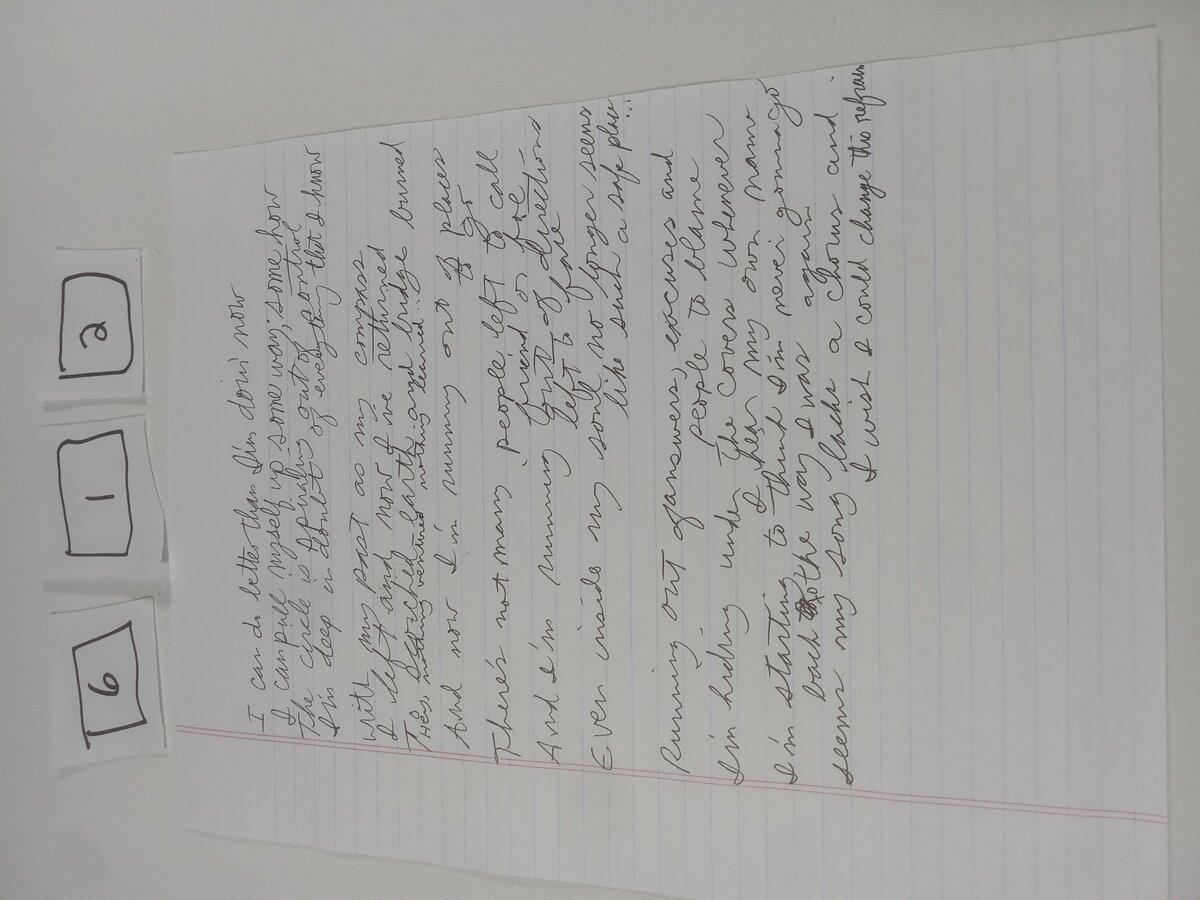 6 1 2
I can do better than I'm doin' now
I can pull myself up some way, some how
The circle is spiraling out of control
I'm deep in doubt of everything that I know
With my past as my compass
I left and now I've returned
There's scorched earth and bridge burned
nothing ventured nothing learned...
And now I'm running out of places
to go
There's not many people left to call
friend or foe
And I'm running out of directions
left to face
Even inside my soul no longer seems
like such a safe place...
Running out of answers, excuses and
people to blame
I'm hiding under the covers whenever
I hear my own name
I'm starting to think I'm never gonna go
back to the way I was again
Seems my song lacks a chorus and
I wish I could change this refrain